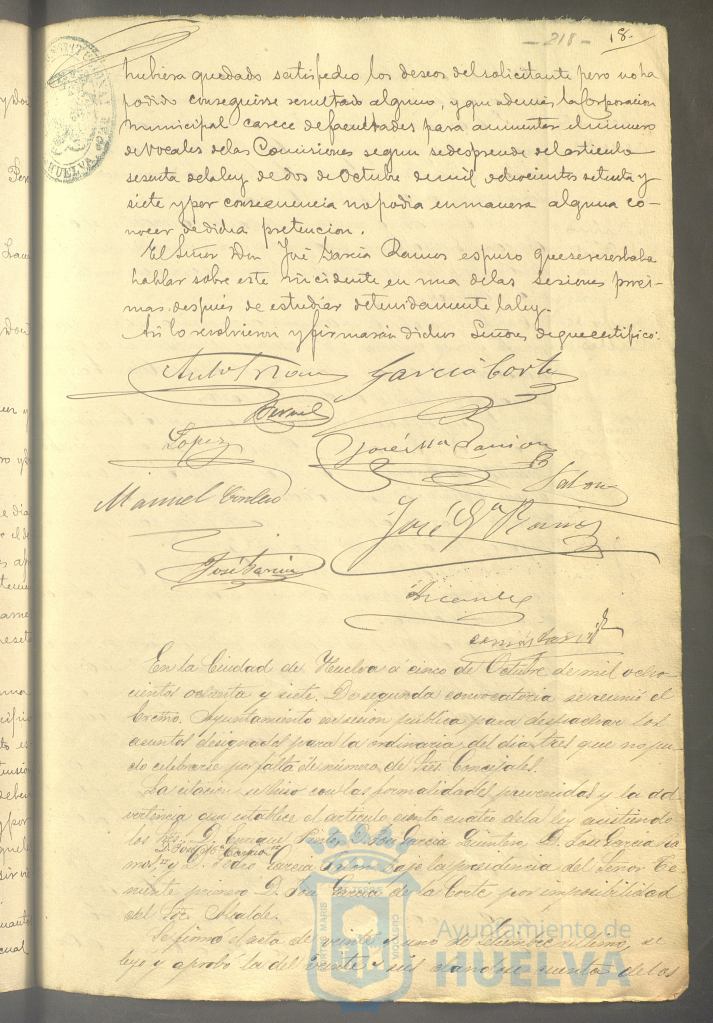 - 218 - 18-
hubiera quedado satisfecho los deseos del solicitante pero no ha
podido conseguirse resultado alguno, y que además la Corporacion
Municipal carece de facultades para aumentar el número
de Vocales de las Comisiones segun se desprende del articulo
sesenta de la ley de dos de Octubre de mil ochocientos setenta y
siete y por consecuencia no podia en manera alguna co-
nocer de dicha pretencion.
El Señor Don José García Ramos espuso que se reserbaba
hablar sobre este incidente en una de las Sesiones proxi-
mas despues de estudiar detenidamente la ley.
Asi lo resolvieron y firmarán dichos Señores de que certifico.
García Corte
López
Manuel Cordero
José Ga Ramos
José García
En la Ciudad de Huelva á cinco de Octubre de mil ocho-
cientos ochenta y siete. De segunda convocatoria se reunió el
Excmo. Ayuntamiento en sesión pública para despachar los
asuntos designados para la ordinaria del dia tres que no pu-
do celebrarse por falta de número de Sres. Concejales.
La citación se hizo con las formalidades prevenidas y la ad-
vertencia que establece el articulo ciento cuatro de la ley asistiendo
los Sres. D. Enrique D. José García Quintero, D. José García Ra-
mos, y D. García bajo la presidencia del Señor Te-
niente primero D. José García de la Corte por imposibilidad
del Sor. Alcalde.
Se firmó el acta de veinte y uno de Setiembre último, se
leyó y aprobó la del veinte y seis cuenta de los
HUELVA
Ayuntamiento de
HUELVA